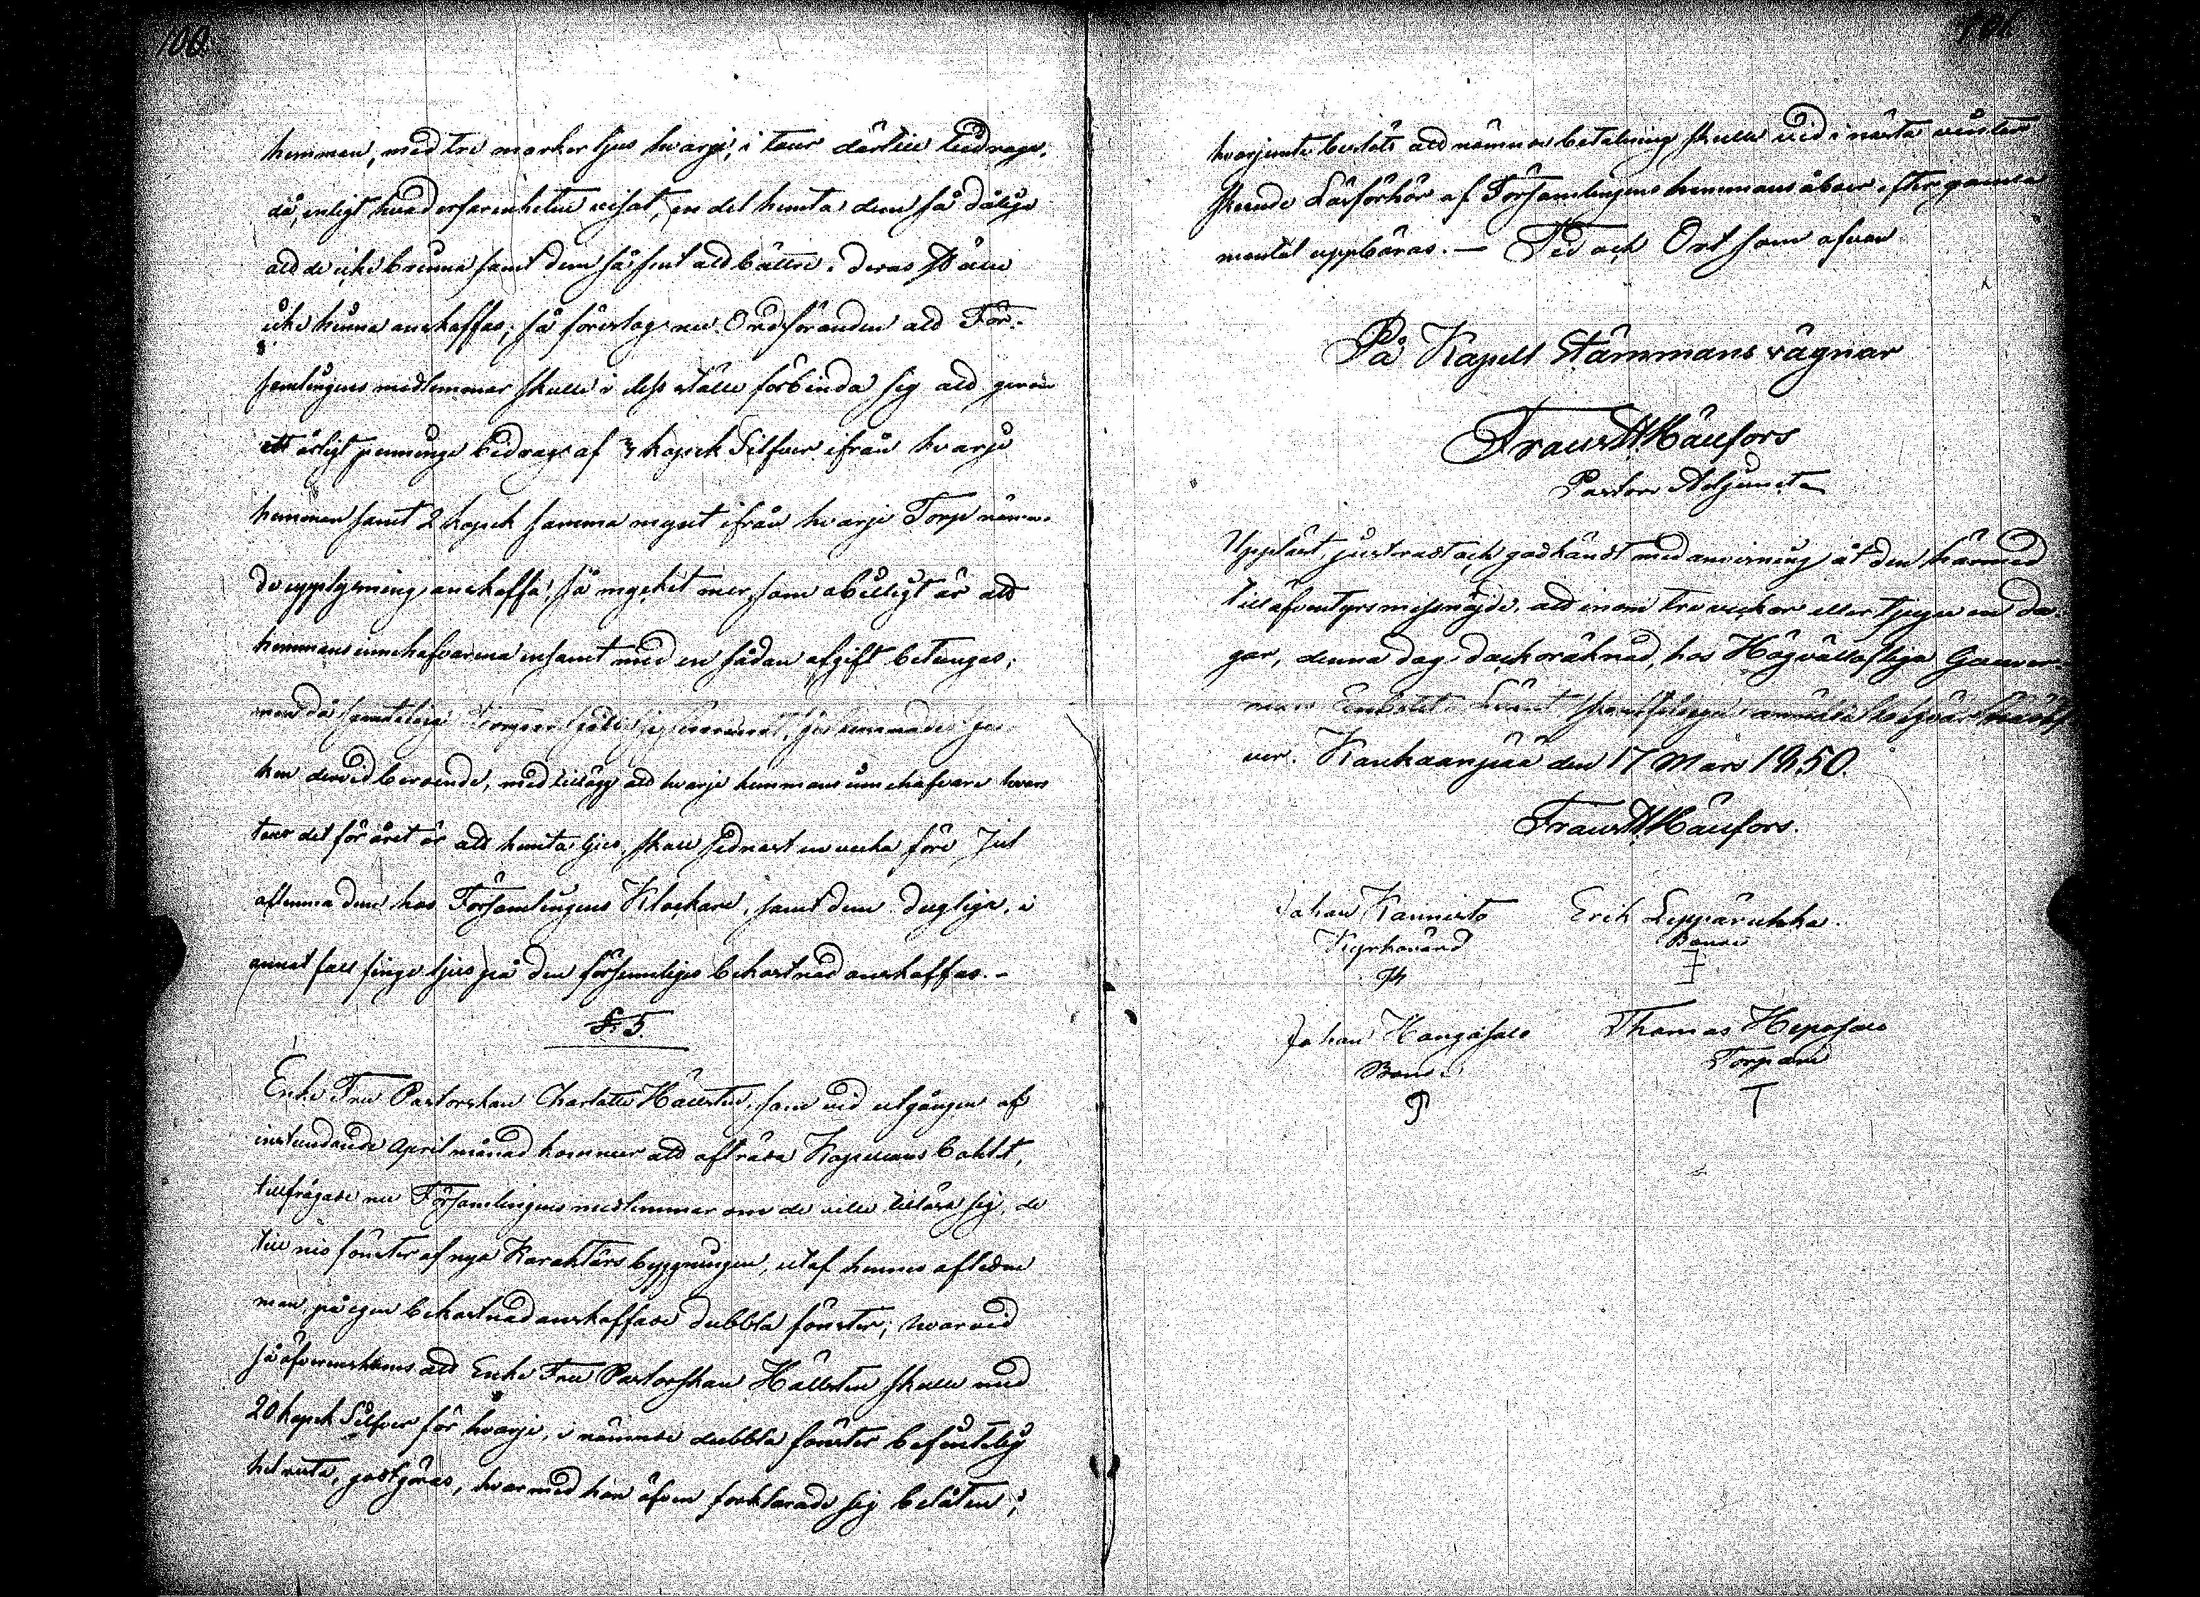 100.
hemman, med tre marker ljus hvarje, i tour därtill bidraga,
då, enligt hvad erfarenheten visat, en del hemta dem så dåliga
att de icke brinna samt dem så sent att bättre i deras ställe
icke hinna anskaffas; så föreslog nu Ordföranden att För-
samlingens medlemmar skulle i dess ställe förbinda sig att genom
ett årligt penninge bidrag af 3 kopek Silfver ifrån hvarje
hemman samt 2 kopek samma mynt ifrån hvarje Torp nämn-
de upplysning anskaffa, så mycket mer, som obilligt är att
hemmans innehafvarena ensamt med en sådan afgift betungas;
men då
ken dervid beroende, med tillägg att hvarje hemmans innehafvare hvars
tour det för året är att hemta ljus, skall sednast en vecka före Jul
aflemna dem hos Församlingens Klockare, samt dem dugliga, i
annat fall finge ljus på den försumliges bekostnad anskaffas. -
§. 5.
Enke Fru Pastorskan Charlotta Hällsten, som vid utgången af
instundande April månad kommer att afträda Kapellans bohlet,
tillfrågade nu Församlingens medlemmar om de ville tillösa sig, de
till nio fönster af nya Karaktärs byggningen, utaf hennes aflidne
man, på egen bekostnad anskaffade dubbla fönster; hvarvid
så öfverenskoms att Enke Fru Pastorskan Hällsten skulle med
20 kopek Silfver för hvarje, i nämnde dubbla fönster befintelig
hel ruta, godtgöras, hvarmed hon äfven förklarade sig belåten;
hvarjemte beslöts att nämnde betalning skulle vid i nästa vinter
skeende Läsförhör af Församlingens hemmansåboer efter gamla
mantal uppbäras. — Tid och Ort som ofvan
På Kapell Stämmans vägnar
Frans H Häufors
Pastors Adjunct
Uppläst, justeradt och godkändt med anvisning åt den härmed
till äfventyrs missnöjde, att inom tre veckor eller tjugu en da-
gar, denna dag dock oräknad, hos Högvällofliga Guver-
nörs Embetet i Länet
ver. Kankaanpää den 17 Mars 1850.
Frans H Häufors.
Johan Kannisto
Kyrkovärd
Erik Leppäruhka
Bonde
Johan Hangasalo
Bonde
Thomas Heposalo
Torpare